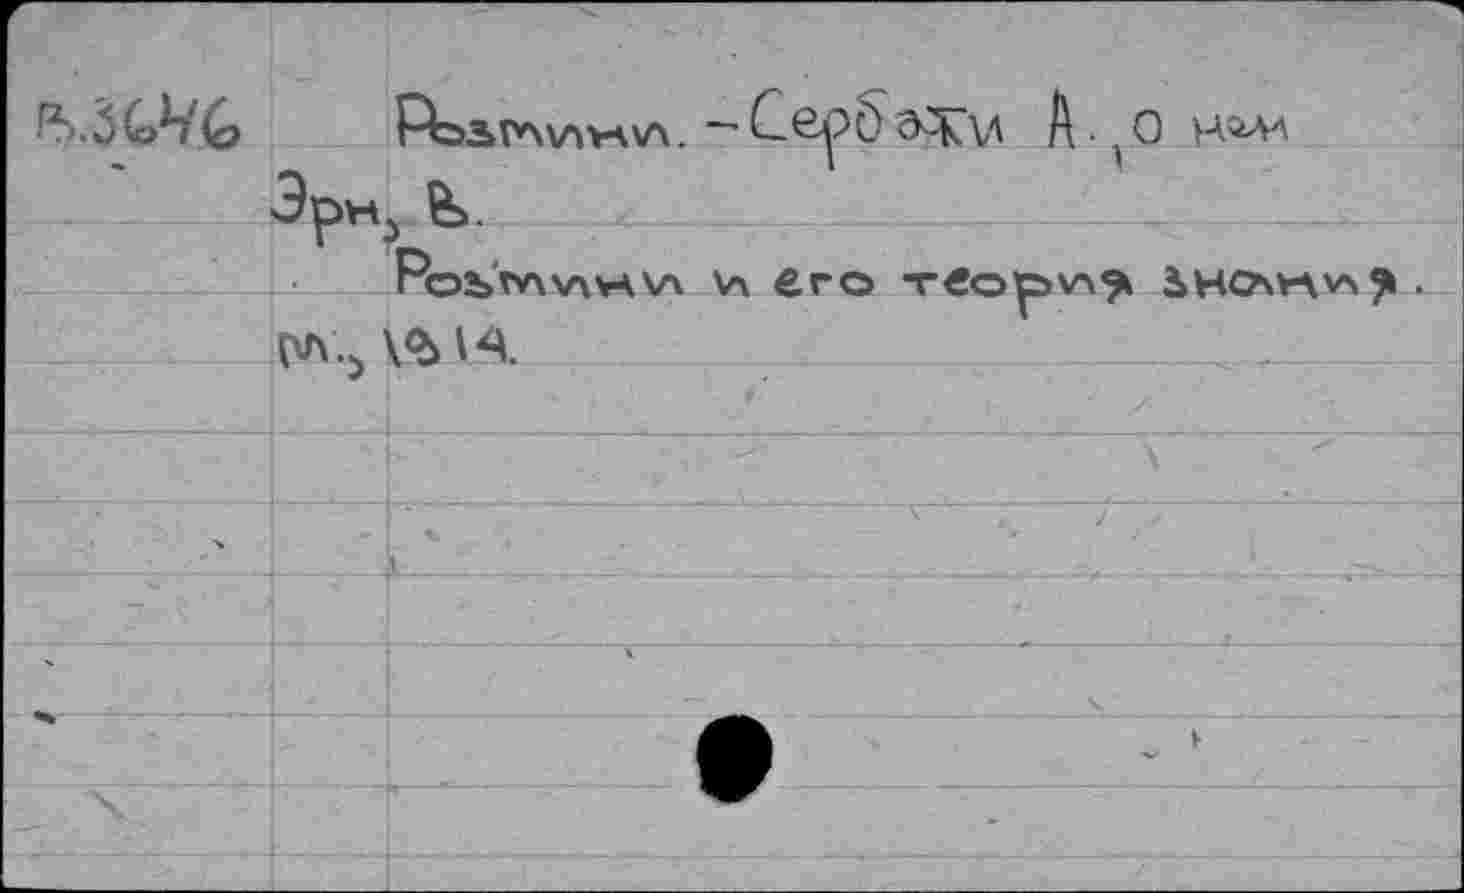 В.36446 Розмини. - Сербати А., о нем
Эрн, В.
Розмини и его теория знания.
М., 1914.